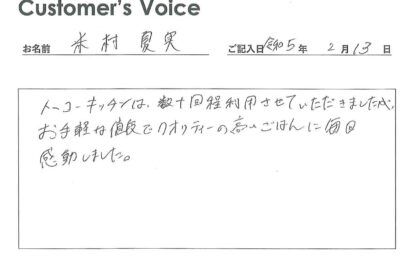 Customer's Voice
お名前 米村夏実 ご記入日 令和5年 2月13日
トーコーキッチンは、数十回程利用させていただきましたが、
お手軽な値段でクオリティーの高いごはんに毎回
感動しました。